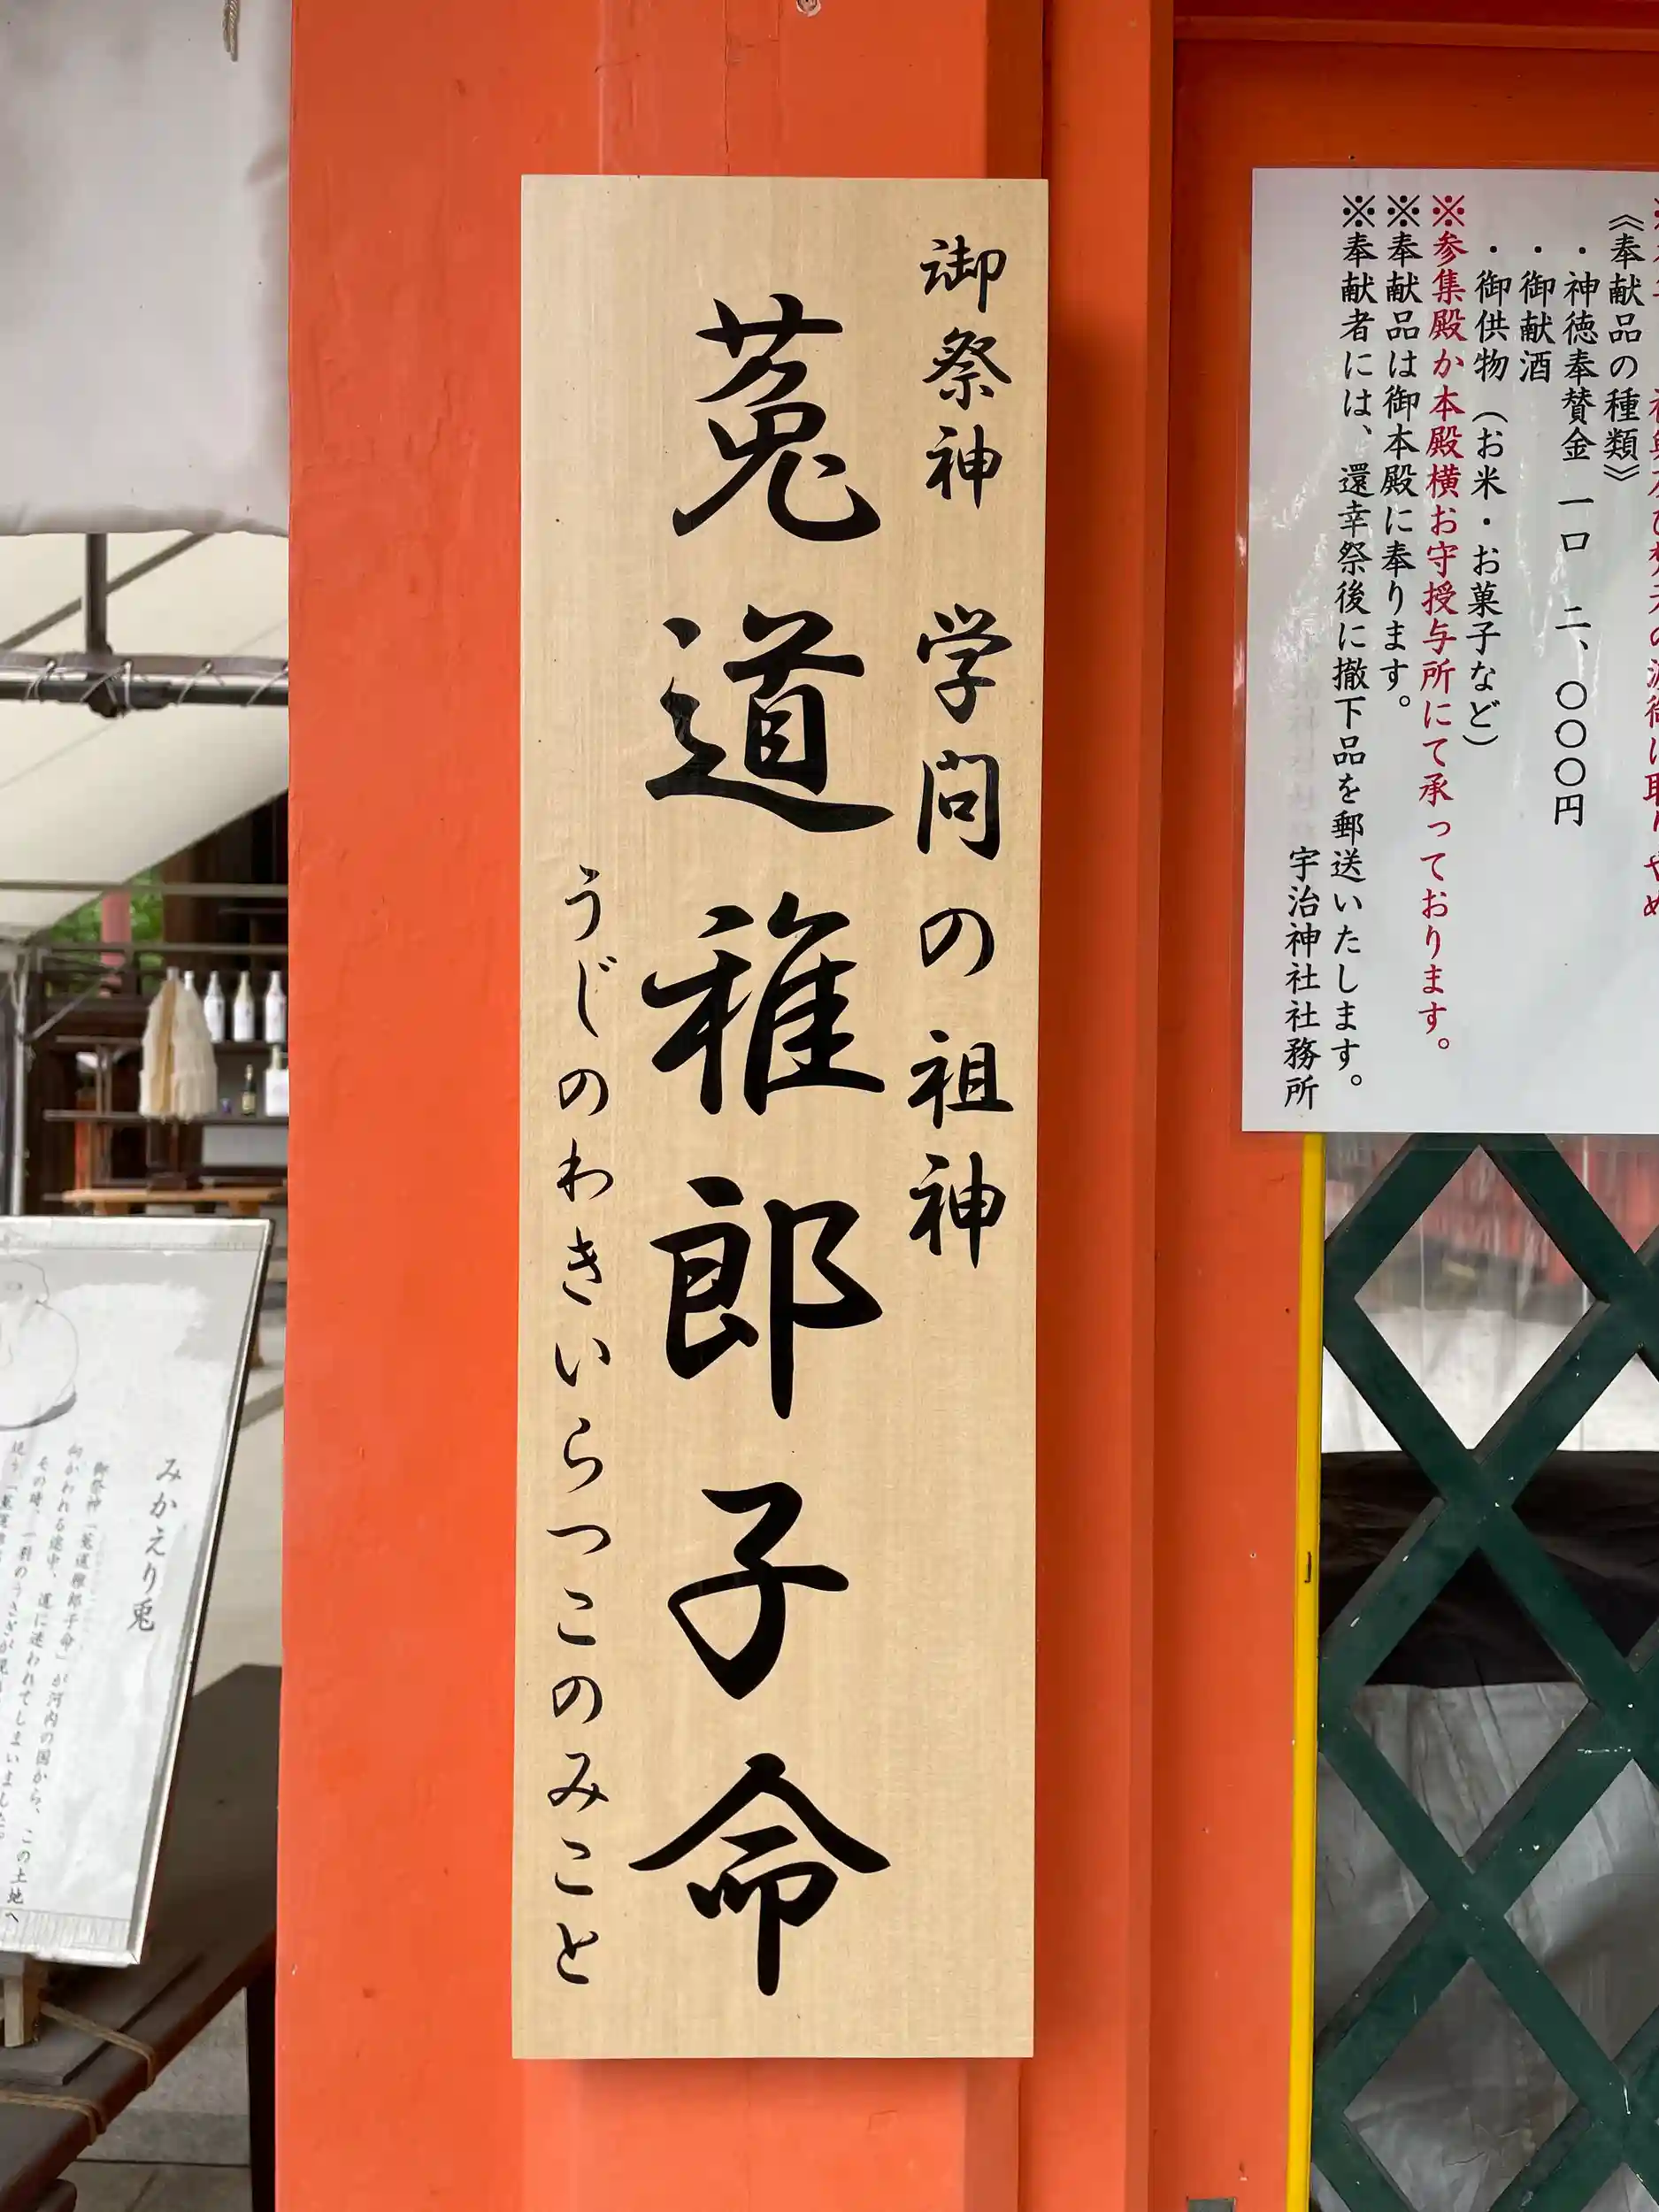 《奉献品の種類》
・神徳奉賛金 一口 二、〇〇〇円
・御献酒
・御供物（お米・お菓子など）
※参集殿か本殿横お守授与所にて承っております。
※奉献品は御本殿に奉ります。
※奉献者には、還幸祭後に撤下品を郵送いたします。
宇治神社社務所
御祭神 学問の祖神
菟道稚郎子命
うじのわきいらつこのみこと
みかえり兎
御祭神「菟道稚郎子命」が河内の国から、この土地へ
向かわれる途中、道に迷われてしまいました。
その時、一羽のうさぎが現